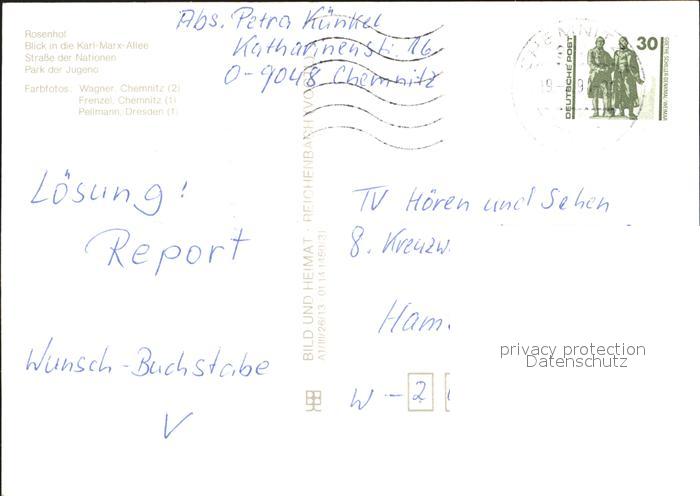 Rosenhof
Blick in die Karl-Marx-Allee
Straße der Nationen
Park der Jugend
Farbfotos: Wagner, Chemnitz (2)
Frenzel, Chemnitz (1)
Pellmann, Dresden (1)
Abs. Petra Künkel
Katharinenstr. 16
O-9048 Chemnitz
CHEMNITZ
DEUTSCHE POST
30
GOETHE-SCHILLER-DENKMAL · WEIMAR
Lösung!
Report
Wunsch-Buchstabe
V
BILD UND HEIMAT · REICHENBACH (VOGTL)
A1/III/26/13 01 14
TV Hören und Sehen
8. Kreuzw.
Ham.
W - 2
privacy protection
Datenschutz